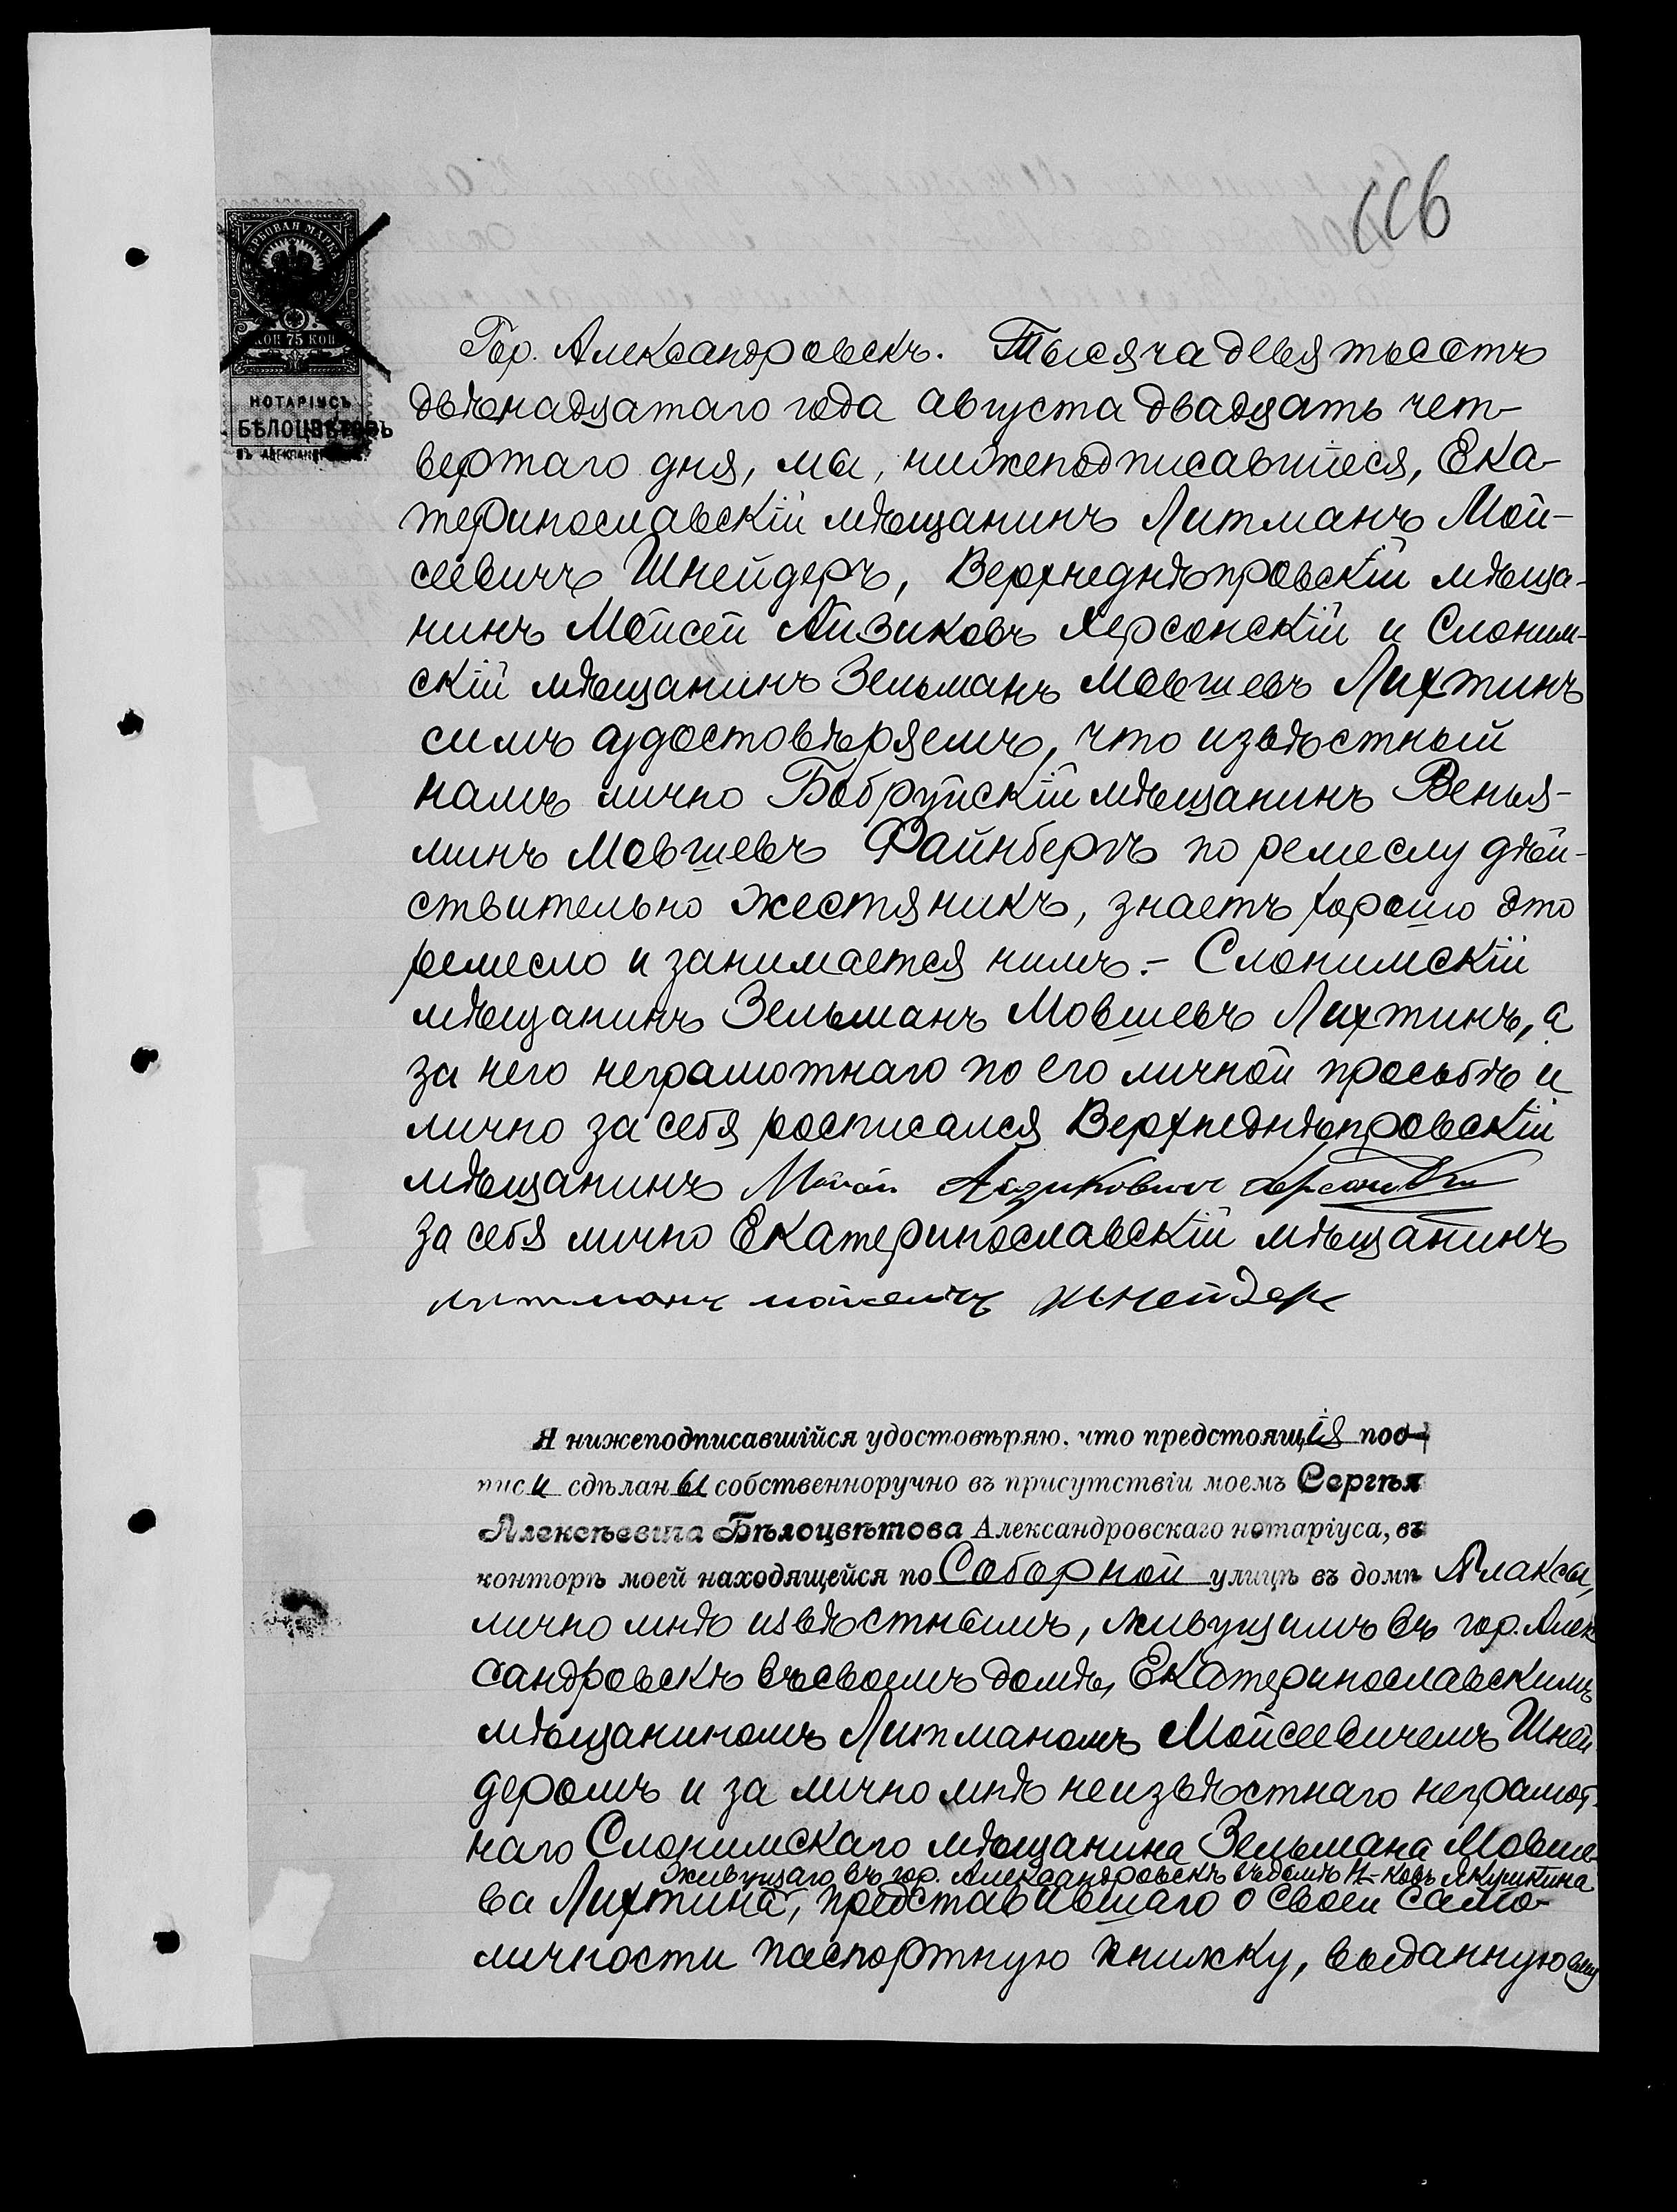 116
ГЕРБОВАЯ МАРКА
КОП 75 КОП
НОТАРІУСЪ
БѢЛОЦВѢТОВЪ
Гор. Александровскъ. Тысяча девятьсотъ
двѣнадцатаго года августа двадцать чет-
вертаго дня, мы, нижеподписавшіеся, Ека-
теринославскій мѣщанинъ Литманъ Мой-
сеевичъ Шнейдеръ, Верхнеднѣпровскій мѣща-
нинъ Мойсей Айзиковъ Херсонскій и Слоним-
скій мѣщанинъ Зельманъ Мовшевъ Лихтинъ
симъ удостовѣряемъ, что извѣстный
намъ лично Бобруйскій мѣщанинъ Венья-
минъ Мовшевъ Файнбергъ по ремеслу дѣй-
ствительно жестяникъ, знаетъ хорошо это
ремесло и занимается нимъ.- Слонимскій
мѣщанинъ Зельманъ Мовшевъ Лихтинъ, а
за него неграмотнаго по его личной просьбѣ и
лично за себя росписался Верхнеднѣпровскій
мѣщанинъ Айзиковичъ Херсонскій
за себя лично Екатеринославскій мѣщанинъ
литманъ шнейдеръ
Я нижеподписавшійся удостовѣряю, что предстоящія под-
писи сдѣланы собственноручно въ присутствіи моемъ Сергѣя
Алексѣевича Бѣлоцвѣтова Александровскаго нотаріуса, въ
конторѣ моей находящейся по Соборной улицѣ въ домѣ Плаксы,
лично мнѣ извѣстнымъ, живущимъ въ гор. Алек
сандровскѣ въ своемъ домѣ, Екатеринославскимъ
мѣщаниномъ Литманомъ Мойсеевичемъ Шней
деромъ и за лично мнѣ неизвѣстнаго неграмот-
наго Слонимскаго мѣщанина Зельмана Мовше-
живущаго въ гор. Александровскѣ въ домѣ Н-ковъ Якушкина
ва Лихтина, представившаго о своей само-
личности паспортную книжку, выданную ему